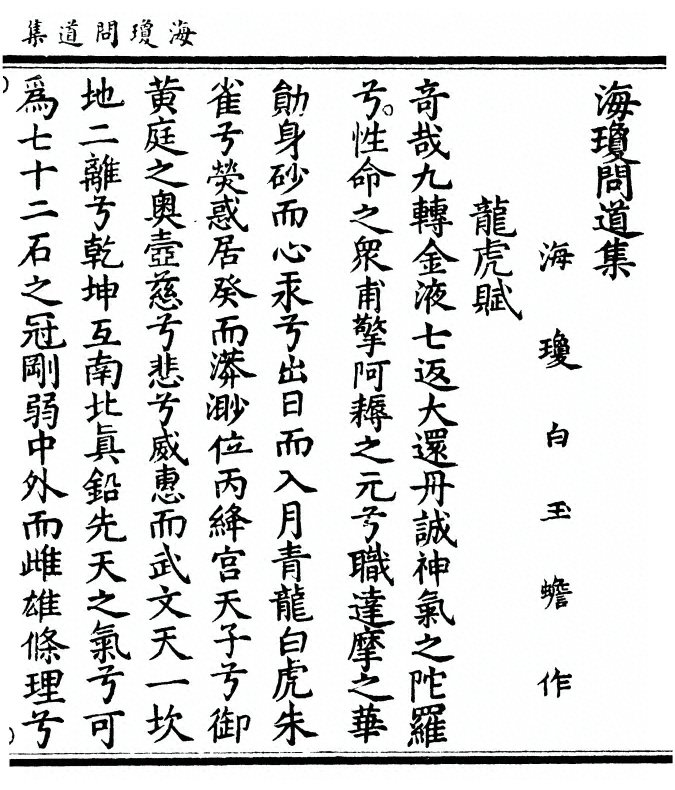 海瓊問道集
海瓊問道集
海瓊白玉蟾作
龍虎賦
奇哉九轉金液七返大還丹誠神氣之陀羅
兮性命之衆甫擎阿耨之元兮職達摩之華
勛身砂而心汞兮出日而入月青龍白虎朱
雀兮熒惑居癸而漭渺位丙絳宮天子兮御
黄庭之奥壼慈兮悲兮威惠而武文天一坎
地二離兮乾坤互南北眞鉛先天之氣兮可
爲七十二石之冠剛弱中外而雌雄條理兮